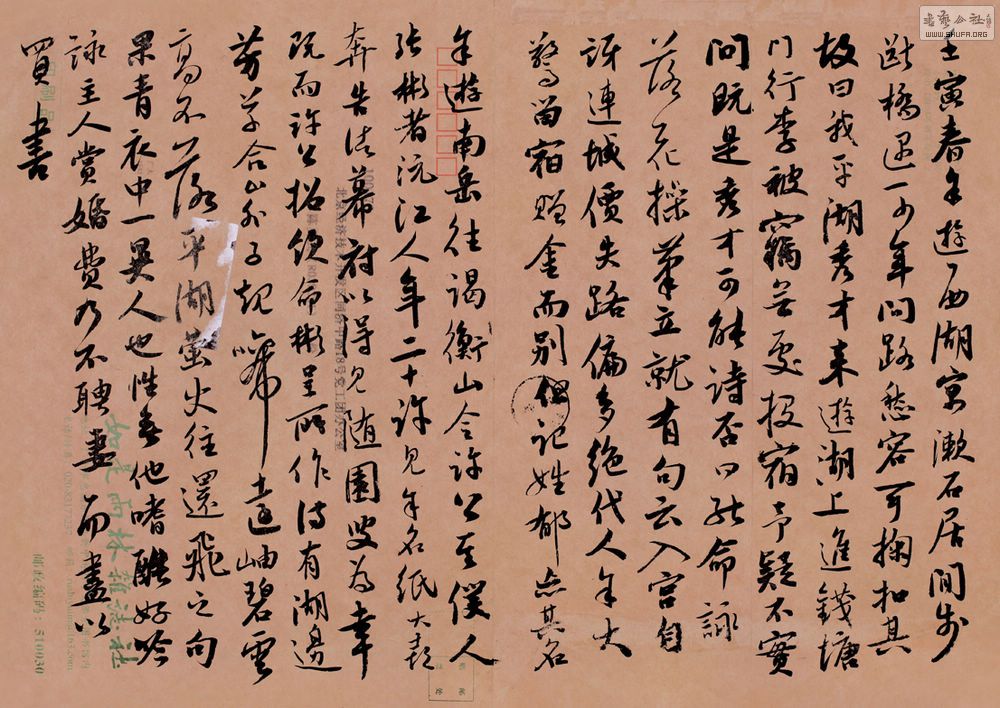 壬寅春余遊西湖寓漱石居閒步
斷橋遇一少年問路愁容可掬扣其
故曰我平湖秀才來遊湖上進錢塘
門行李被竊無處投宿予疑不實
問既是秀才可能詩否曰能命詠
落花操筆立就有句云入宮自
訝連城價失路偏多絕代人余大
驚留宿贈金而別但記姓郁忘其名
余遊南岳往謁衡山令許公其僕人
張彬者沅江人年二十許見余名紙大喜
奔告諸幕府以得見随園叟為幸
既而許公招飲命彬呈所作詩有湖邊
芳草合山外子規啼遠岫碧雲
高不落平湖螢火往還飛之句
果青衣中一異人也性無他嗜酷好吟
詠主人賞婚費乃不聘妻而盡以
買書
邮政编码：510030
书艺公社
WWW.SHUFA.ORG